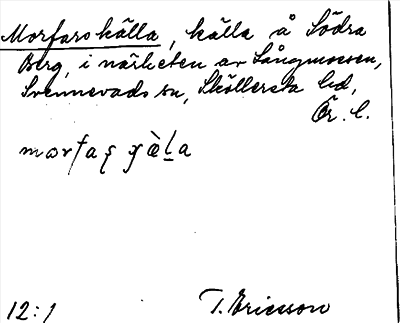 Morfarskälla, källa å Södra
Berg, i närheten av Långmossen,
Svennevads sn, Sköllersta hd,
Ör. l.
12:1 T. Ericsson